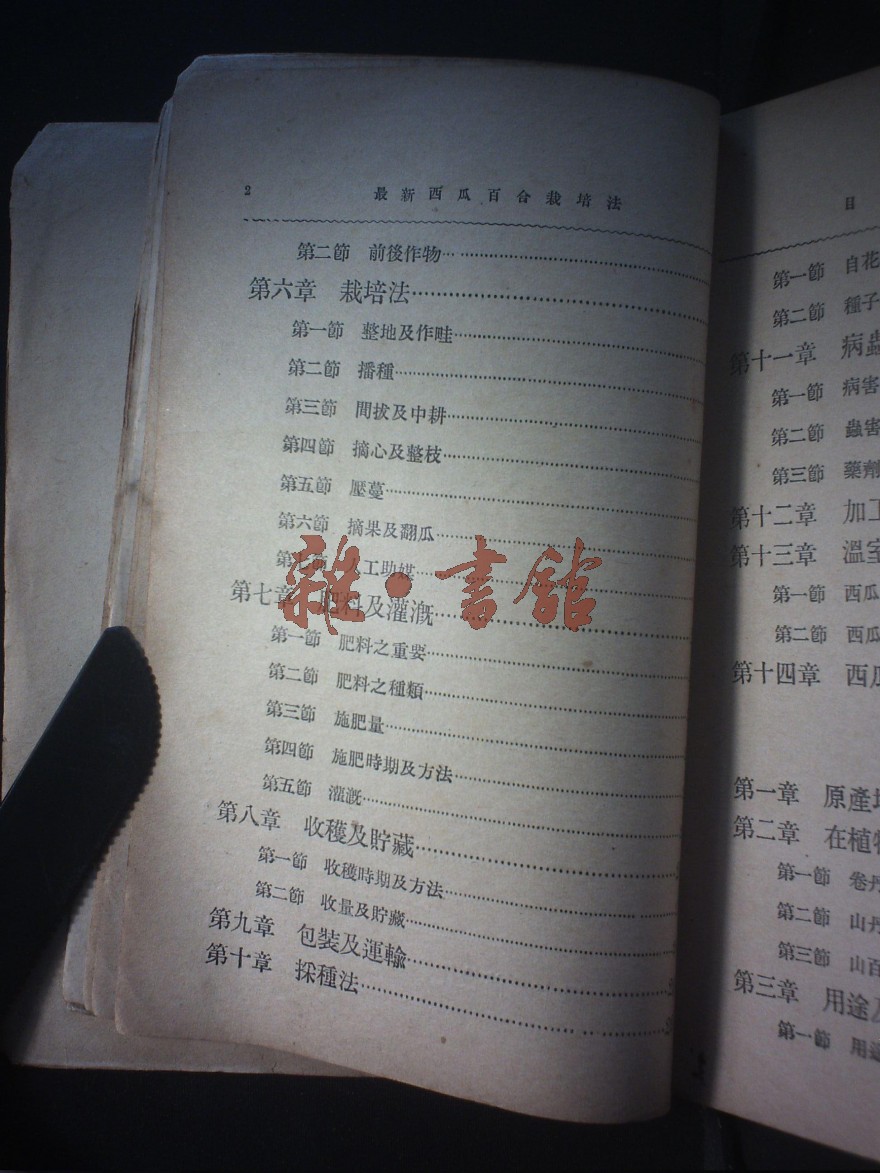 2 最新西瓜百合栽培法
第二節 前後作物
第六章 栽培法
第一節 整地及作畦
第二節 播種
第三節 間拔及中耕
第四節 摘心及整枝
第五節 壓蔓
第六節 摘果及翻瓜
第七節 人工助媒
第七章 肥料及灌漑
第一節 肥料之重要
第二節 肥料之種類
第三節 施肥量
第四節 施肥時期及方法
第五節 灌漑
第八章 收穫及貯藏
第一節 收穫時期及方法
第二節 收量及貯藏
第九章 包裝及運輸
第十章 採種法
雜·書館
目
第一節 自花
第二節 種子
第十一章 病蟲
第一節 病害
第二節 蟲害
第三節 藥劑
第十二章 加工
第十三章 溫室
第一節 西瓜
第二節 西瓜
第十四章 西瓜
第一章 原產地
第二章 在植物
第一節 卷丹
第二節 山丹
第三節 山百
第三章 用途及
第一節 用途